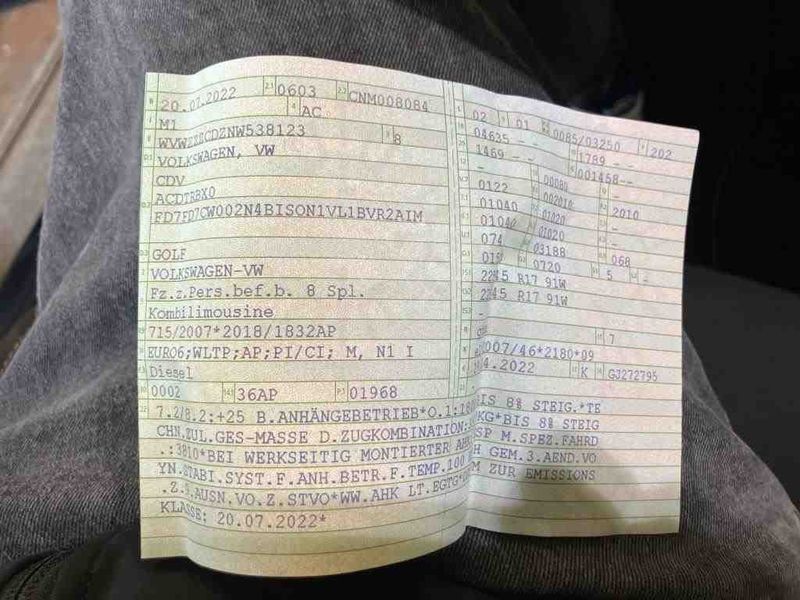 20.07.2022 0603 CNM008084
M1 AC
WVWZZZCDZNW538123 8
VOLKSWAGEN, VW
CDV
ACDTRBX0
FD7FD7CW002N4BISON1VL1BVR2AIM
GOLF
VOLKSWAGEN-VW
Fz.z.Pers.bef.b. 8 Spl.
Kombilimousine
715/2007*2018/1832AP
EURO6;WLTP;AP;PI/CI; M, N1 I
Diesel
0002 36AP 01968
02 01 0085/03250 202
04635 - - 1789 - -
1469 - - 001458--
- 00080 -
0122 002010 -
01040 01020 2010
01040 01020 -
074 03188 068
0720 5 -
R17 91W
R17 91W
-
7
007/46*2180*09
.2022 K GJ272795
7.2/8.2:+25 B.ANHÄNGEBETRIEB*O.1: BIS 8% STEIG.*TE
CHN.ZUL.GES-MASSE D.ZUGKOMBINATION: KG*BIS 8% STEIG
.:3810*BEI WERKSEITIG MONTIERTER SP M.SPEZ.FAHRD
YN.STABI.SYST.F.ANH.BETR.F.TEMP.100 H GEM.3.AEND.VO
.Z.9.AUSN.VO.Z.STVO*WW.AHK LT.EGTG* M ZUR EMISSIONS
KLASSE: 20.07.2022*